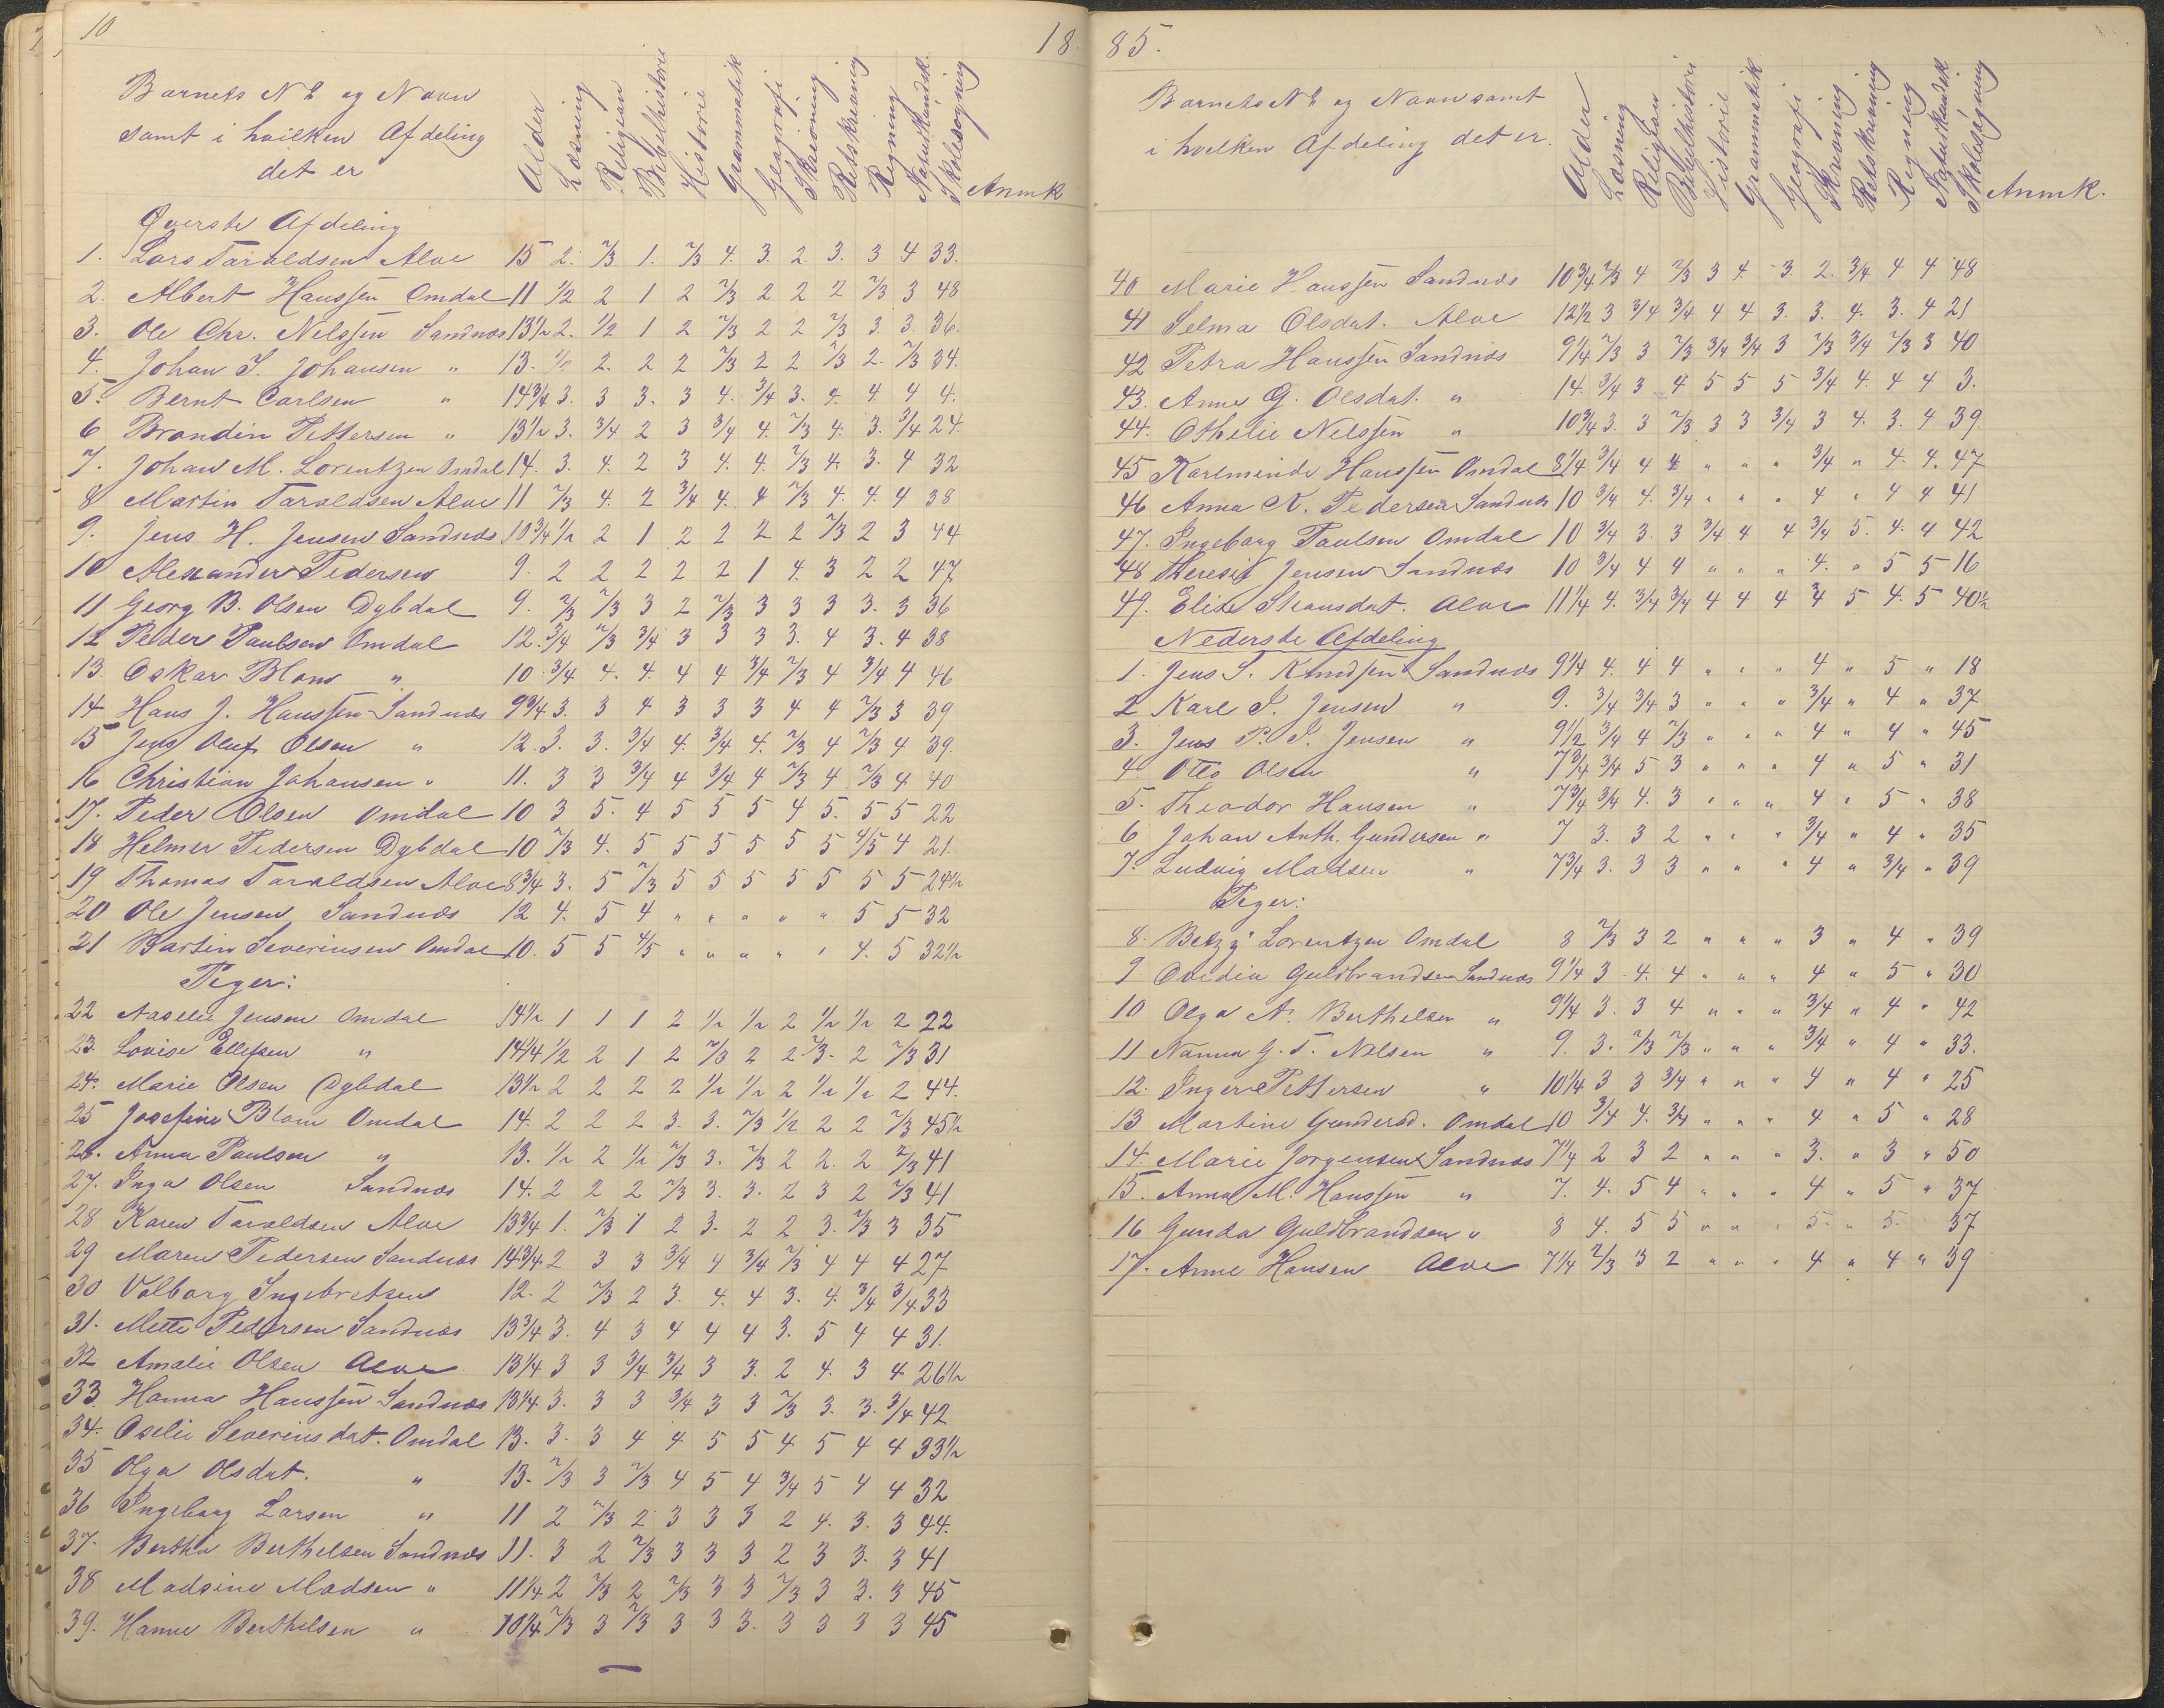 10
18
Barnets No og Navn
samt i hvilken Afdeling
det er
Alder Læsning Religion Bibelhistorie Historie Grammatik Geografi Skrivning Retskrivning Regning Naturkundsk. Skolesøgning Anmk
Øverste Afdeling
1. Lars Taraldsen Alve 15 2. 2/3 1. 2/3 4. 3. 2. 3. 3 4 33.
2. Albert Hanssen Omdal 11 1/2 2 1 2 2/3 2 2 2 2/3 3 48
3. Ole Chr. Nilssen Sandnæs 13 1/2 2. 1/2 1 2 2/3 2 2 2/3 3. 3. 36.
4. Johan S. Johansen " 13. 1/2 2. 2 2 2/3 2 2 2/3 2. 2/3 34.
5. Bernt Carlsen " 14 3/4 3. 3 3. 3 4. 3/4 3. 4. 4. 4 4.
6 Brondin Pettersen " 13 1/2 3. 3/4 2 3 3/4 4. 2/3 4. 3. 3/4 24.
7. Johan M. Lorentzen Omdal 14. 3. 4. 2 3 4. 4. 2/3 4. 3. 4 32
8 Martin Taraldsen Alve 11 2/3 4. 2 3/4 4. 4 2/3 4. 4. 4 38
9. Jens H. Jensen Sandnæs 10 3/4 1/2 2 1 2 2 2 2 2/3 2 3 44
10 Alexander Pedersen 9. 2 2 2 2 2 1 4. 3 2 2 47
11 Georg B. Olsen Dybdal 9. 2/3 2/3 3 2 2/3 3 3 3 3. 3 36
12 Peder Paulsen Omdal 12. 3/4 2/3 3/4 3 3 3 3. 4 3. 4 38
13. Oskar Blom " 10 3/4 4. 4. 4 4 3/4 2/3 4 3/4 4 46
14 Hans J. Hanssen Sandnæs 9 3/4 3. 3 4 3 3 3 4 4 2/3 3 39
15 Jens Oluf Olsen " 12. 3. 3. 3/4 4. 3/4 4. 2/3 4 2/3 4 39.
16 Christian Johansen " 11. 3 3 3/4 4 3/4 4 2/3 4. 2/3 4 40
17. Peder Olsen Omdal 10 3 5. 4 5 5 5 4 5. 5 5 22
18 Helmer Pedersen Dybdal 10 2/3 4. 5 5 5 5 5 5 4/5 4 21.
19 Thomas Taraldsen Alve 8 3/4 3. 5 2/3 5 5 5 5 5 5 5 24 1/2
20 Ole Jensen Sandnæs 12 4. 5 4 " " " " " 5 5 32
21 Bartin Severinsen Omdal 10. 5 5 4/5 " " " " " 4. 5 32 1/2
Piger:
22 Aaselie Jensen Omdal 14 1/2 1 1 1 2 1/2 1/2 2 1/2 1/2 2 22
23. Lovise Ellefsen " 14 1/4 1/2 2 1 2 2/3 2 2 2/3. 2 2/3 31
24. Marie Olsen Dybdal 13 1/2 2 2 2 2 1/2 1/2 2 1/2 1/2 2 44.
25 Josefine Blom Omdal 14. 2 2 2 3. 3. 2/3 1/2 2 2 2/3 45 1/2
26. Anna Paulsen " 13. 1/2 2 1/2 2/3 3. 2/3 2 2. 2 2/3 41
27. Inga Olsen Sandnæs 14. 2 2 2 2/3 3. 3. 2 3 2 2/3 41
28 Karen Taraldsen Alve 13 3/4 1. 2/3 1 2 3. 2 2 3. 2/3 3 35
29 Maren Pedersen Sandnæs 14 3/4 2 3 3 3/4 4 3/4 2/3 4 4 4 27
30 Valborg Ingebretsen 12. 2 2/3 2 3. 4. 4 3. 4. 3/4 3/4 33
31. Mette Pedersen Sandnæs 13 3/4 3. 4 3 4 4 4 3. 5 4 4 31.
32 Amalie Olsen Alve 13 1/4 3 3 3/4 3/4 3 3. 2 4. 3 4 26 1/2
33. Hanna Hanssen Sandnæs 13 1/4 3. 3 3 3/4 3 3 2/3 3. 3. 3/4 42
34. Oselie Severinsdat. Omdal 13. 3. 3 4 4 5 5 4 5 4 4 33 1/2
35 Olga Olsdat. " 13. 2/3 3 2/3 4 5 4 3/4 5 4 4 32
36 Ingeborg Larsen " 11 2 2/3 2 3 3 3 2 4. 3. 3 44.
37. Bertha Berthelsen Sandnæs 11. 3 2 2/3 3 3 3 2 3 3. 3 41
38 Madsine Madsen " 11 1/4 2 2/3 2 2/3 3 3 2/3 3 3. 3 45
39. Hanne Berthelsen " 10 1/4 2/3 3 2/3 3 3 3. 3 3 3 3 45
85.
Barnets No og Navn samt
i hvilken Afdeling det er.
Alder Læsning Religion Bibelhistorie Historie Grammatik Geografi Skrivning Retskrivning Regning Naturkundsk Skolesøgning Anmk.
40 Marie Hanssen Sandnæs 10 3/4 2/3 4 2/3 3 4. 3. 2. 3/4 4 4 48
41 Selma Olsdat. Alve 12 1/2 3 3/4 3/4 4 4 3. 3. 4. 3. 4 21
42 Petra Hanssen Sandnæs 9 1/4 2/3 3 2/3 3/4 3/4 3 2/3 3/4 2/3 3 40
43. Anne G. Olsdat. " 14. 3/4 3 4 5 5 5 3/4 4. 4 4 3.
44. Othelie Nilssen " 10 3/4 3. 3 2/3 3 3 3/4 3 4. 3. 4 39.
45 Karlminde Hanssen Omdal 8 1/4 3/4 4 4 " " " 3/4 " 4. 4. 47
46 Anna K. Pedersen Sandnæs 10 3/4 4. 3/4 " " " 4 " 4 4 41
47. Ingeborg Paulsen Omdal 10 3/4 3. 3 3/4 4 4 3/4 5. 4. 4 42
48 Theresie Jensen Sandnæs 10 3/4 4 4 " " " 4. " 5 5 16
49. Elise Hansdat. Alve 11 1/4 4. 3/4 3/4 4 4 4 4 5 4. 5 40 1/2
Nederste Afdeling
1. Jens S. Knudsen Sandnæs 9 1/4 4. 4 4 " " " 4 " 5 " 18
2 Karl S. Jensen " 9. 3/4 3/4 3 " " " 3/4 " 4 " 37
3. Jens P. S. Jensen " 9 1/2 3/4 4 2/3 " " " 4 " 4 " 45
4. Otto Olsen " 7 3/4 3/4 5 3 " " " 4 " 5 " 31
5. Theodor Hansen " 7 3/4 3/4 4. 3 " " " 4 " 5 " 38
6 Johan Anth. Gundersen " 7 3. 3 2 " " " 3/4 " 4 " 35
7. Ludvig Madsen " 7 3/4 3. 3 3 " " " 4 " 3/4 " 39
Piger:
8. Betzy Lorentzen Omdal 8 2/3 3 2 " " " 3 " 4 " 39
9. Ovedia Guldbrandsen Sandnæs 9 1/4 3 4. 4 " " " 4 " 5 " 30
10 Olga A. Berthelsen " 9 1/4 3. 3 4 " " " 3/4 " 4 " 42
11 Nanna G. T. Nilsen " 9. 3. 2/3 2/3 " " " 3/4 " 4 " 33.
12. Inger Pettersen " 10 1/4 3 3 3/4 " " " 4 " 4 " 25
13 Martine Gundersd. Omdal 10 3/4 4. 3/4 " " " 4 " 5 " 28
14. Marie Jorgensen Sandnæs 7 1/4 2 3 2 " " " 3. " 3 " 50
15. Anna M. Hanssen " 7. 4. 5 4 " " " 4 " 5 " 37
16 Gunda Guldbrandsen " 8 4. 5 5 " " " 5. " 5. 37
17. Anne Hansen Alve 7 1/4 2/3 3 2 " " " 4 " 4 " 39